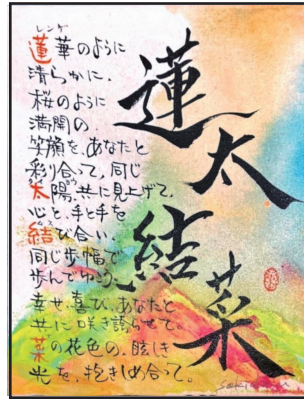 レンゲ
蓮華のように
清らかに.
桜のように
満開の.
笑顔を、あなたと
彩り合って、同じ
太陽、共に見上げて、
心と、手と手を
結び合い.
同じ歩幅で
歩んでゆこう.
幸せ、喜び、あなたと
共に咲き誇らせて。
菜の花色の、眩しき
光を、抱きしめ合って。
蓮太
結菜